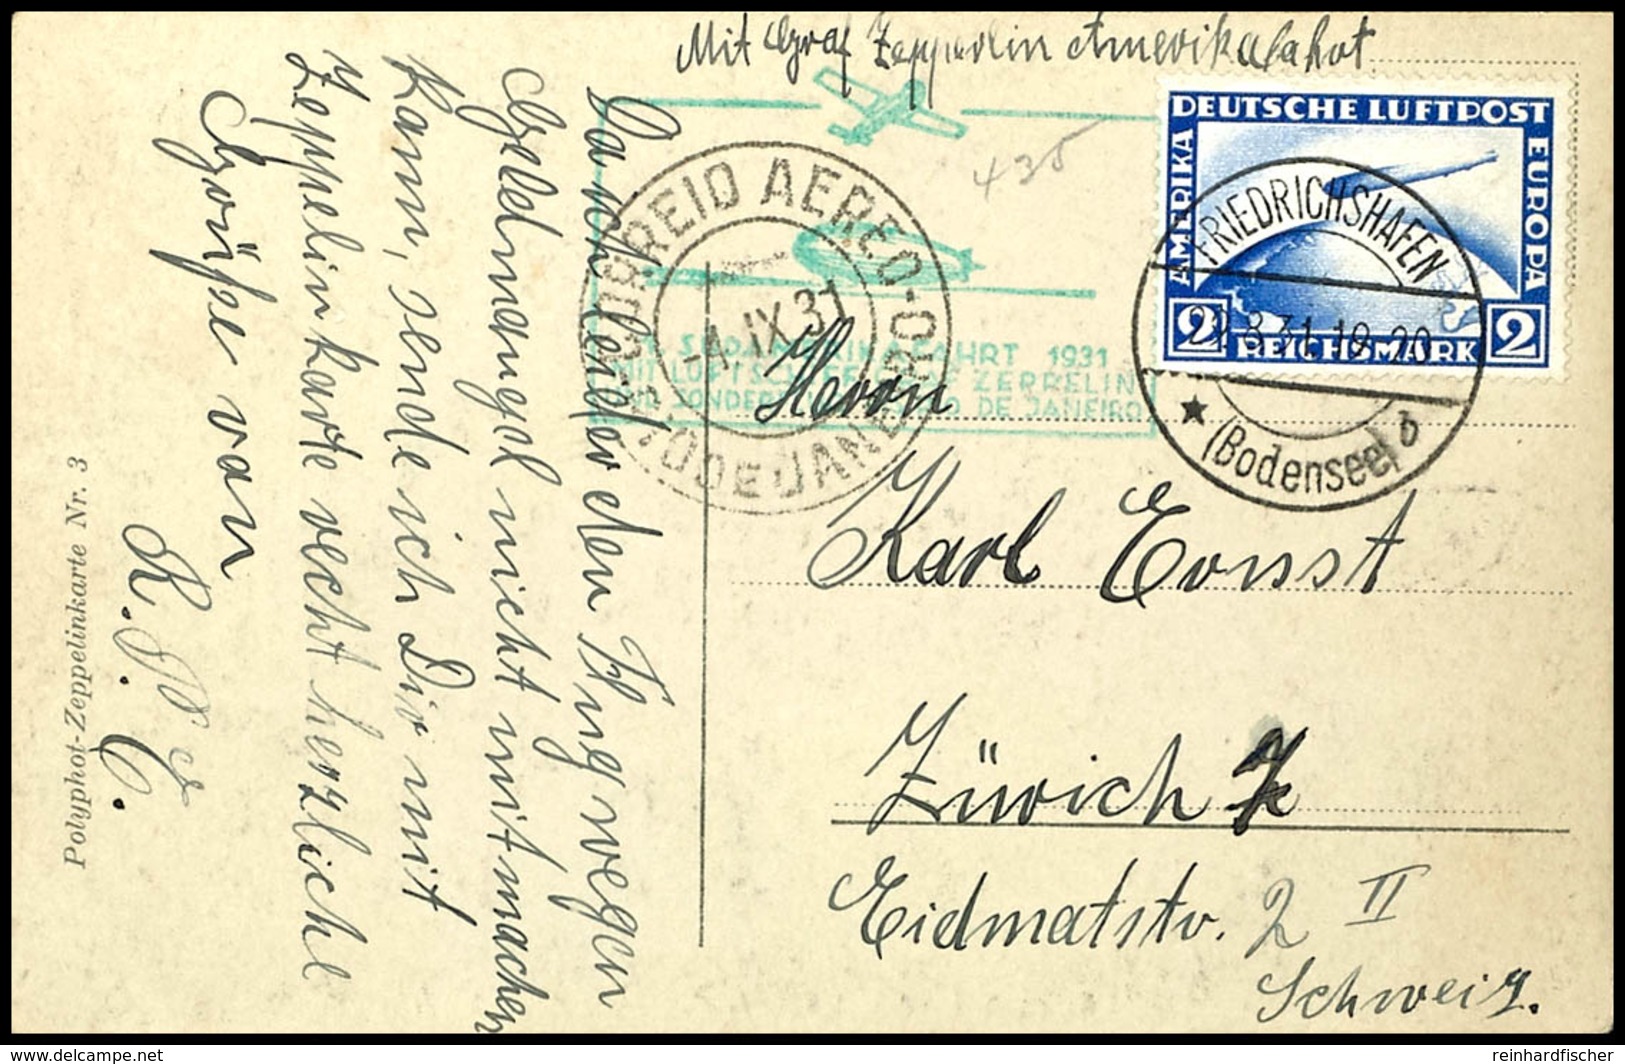 Mit Graf Zeppelin Amerikafahrt
DEUTSCHE LUFTPOST
AMERIKA
EUROPA
2 REICHSMARK 2
FRIEDRICHSHAFEN
29.8.31.19-20
★ (Bodensee) b
435
CORREIO AEREO
-4.IX.31
RIO DE JANEIRO
SÜDAMERIKAFAHRT 1931
MIT LUFTSCHIFF GRAF ZEPPELIN
UND SONDERFLUG RIO DE JANEIRO
Herrn
Karl Ernst
Zürich 7
Eidmatstr. 2 II
Schweiz.
Da ich leider den Flug wegen
Geldmangel nicht mitmachen
kann, sende ich Dir mit
Zeppelinkarte recht herzliche
Grüße von
Polyphot-Zeppelinkarte Nr. 3
delcampe.net
reinhardfischer